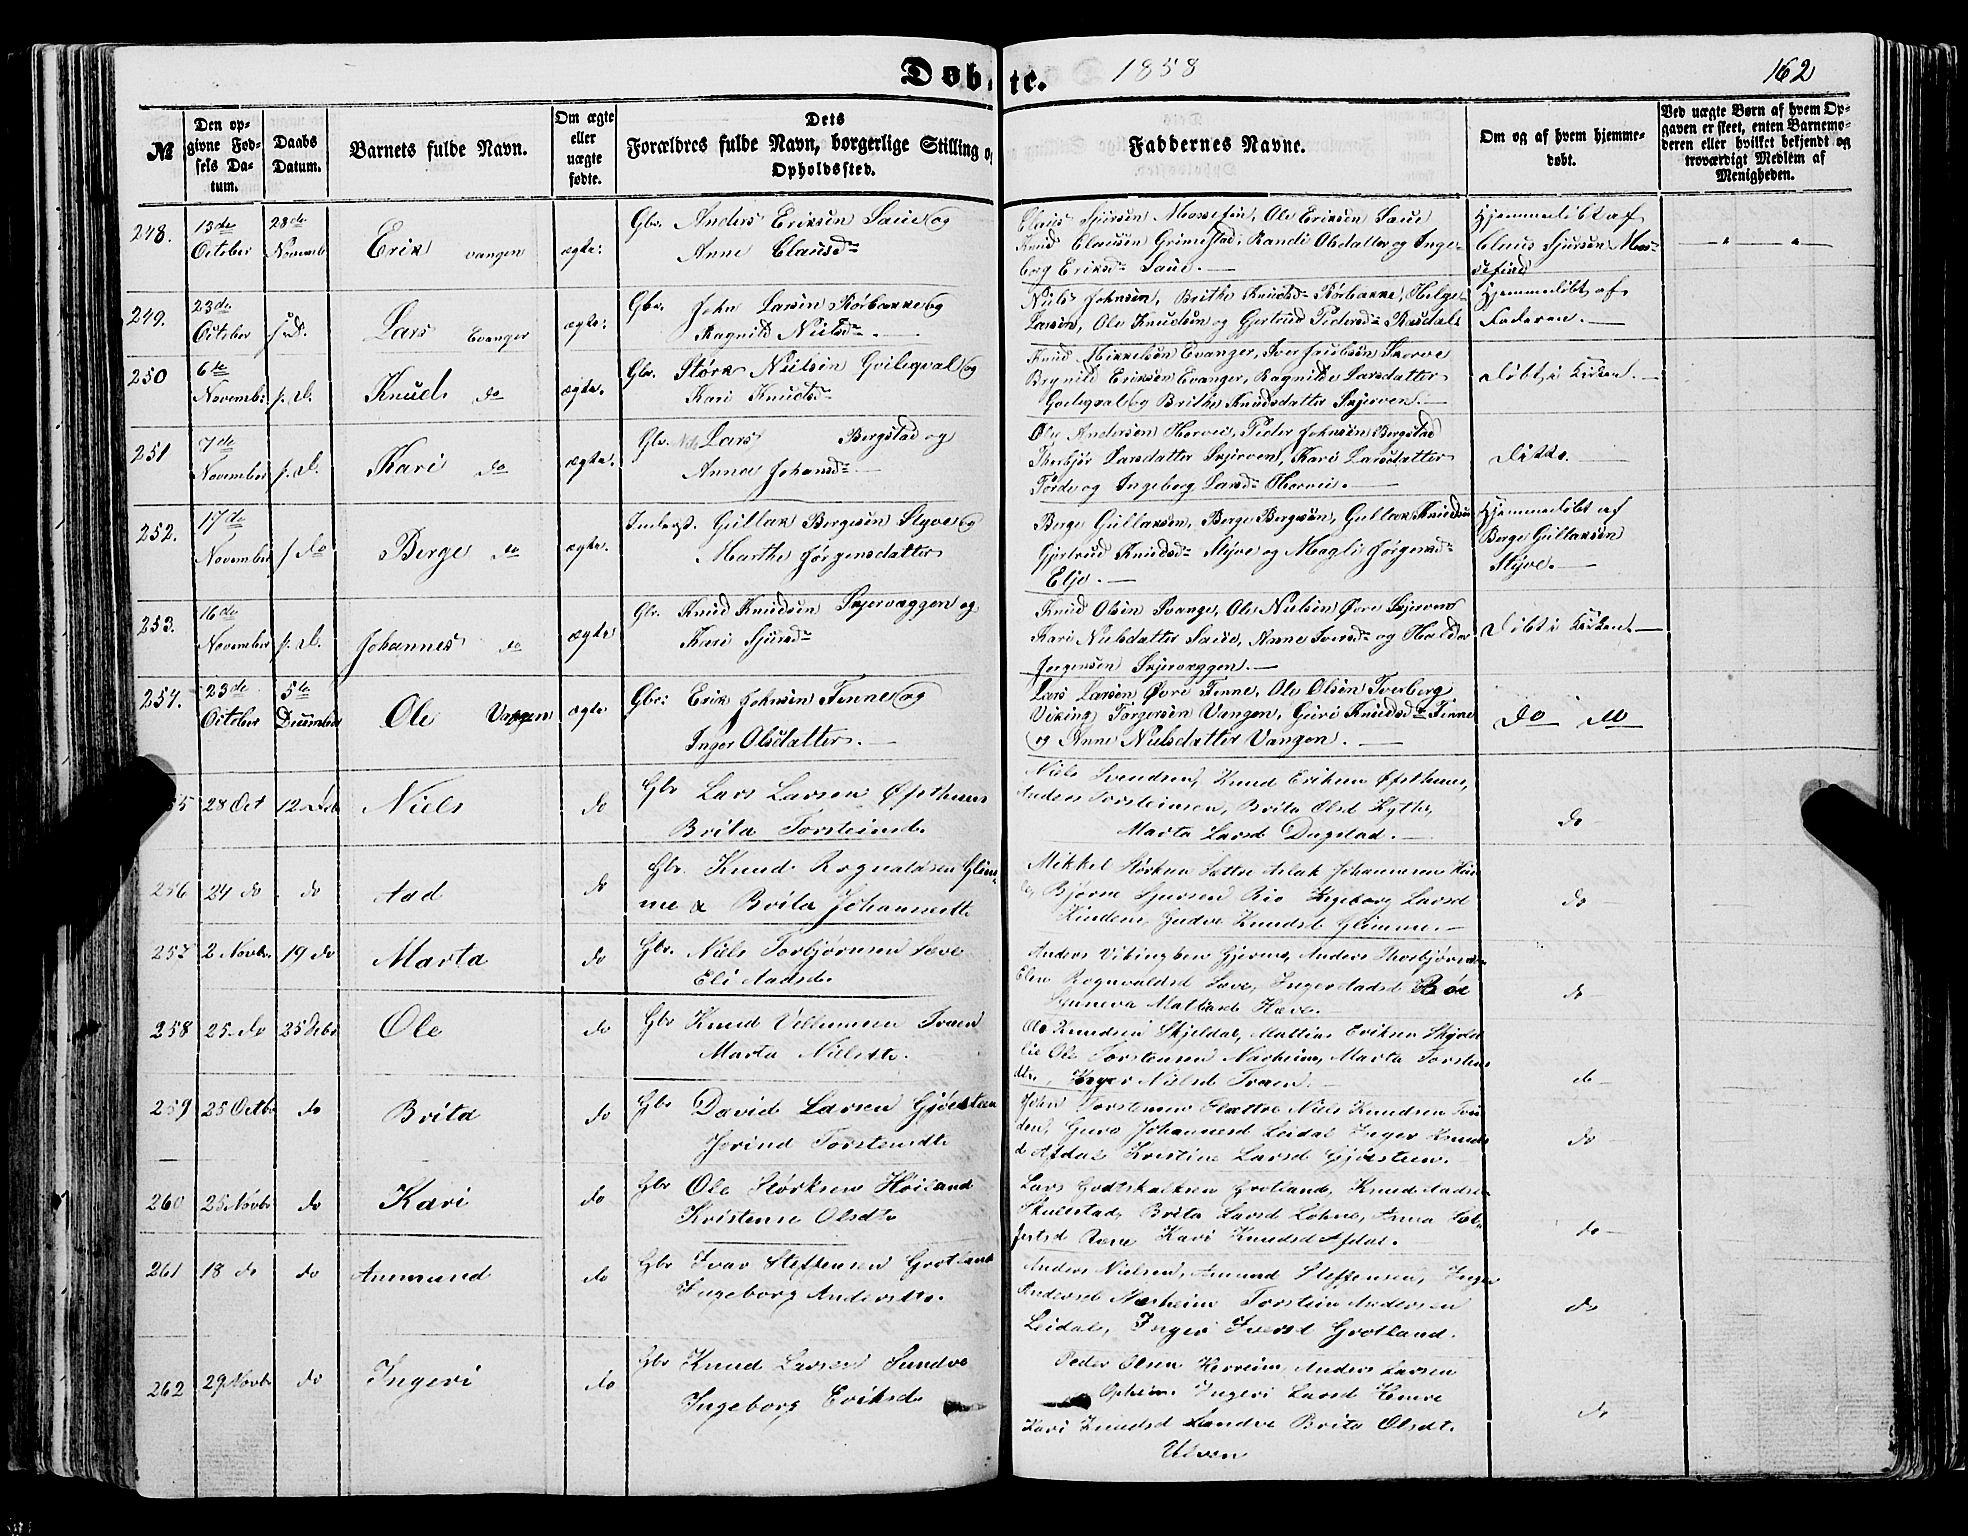 Døbte. 1858 162
№
Den opgivne Fødsels Datum.
Daabs Datum.
Barnets fulde Navn.
Om ægte eller uægte fødte.
Dets Forældres fulde Navn, borgerlige Stilling o Opholdssted.
Faddernes Navne.
Om og af hvem hjemmedøbt.
Ved uægte Børn af hvem Opgaven er skeet, enten Barnemoderen eller hvilket bekjendt og troværdigt Medlem af Menigheden.
248. 13de October 28de Novemb Erik vangen ægte:
Gbr. Anders Eriksen Saue og
Anne Clausd-
Claus Sjursen Mossefin, Ole Eriksen Saue
Knud Clausen Grimestad, Randi Olsdatter og Inge-
borg Eriksd- Saue.
Hjemmedøbt af
Claus Sjursen Mos-
sefind
249. 23de October s. D. Lars Evanger ægte:
Gbr. John Larsen Rørbakke og
Ragnild Nielsd-
Niels Johnsen, Brithe Knudsd- Rørbakke, Helge
Larsen, Ole Knudsen og Gjertrud Pedersd- Rasdal
Hjemmedøbt af
Faderen.
250 6te November s. D. Knud do ægte.
Gbr. Størk Nielsen Gvileqval og
Kari Knudsd-
Knud Mikkelsen Evanger, Iver Jacobsen Skorve
Brynild Eriksen Evanger, Ragnilde Larsdatter
Gvileqval og Brithe Knudsdatter Skjerven.
Døbt i Kirken.
251 7de November s. D. Kari do ægte.
Gbr. Nils Lars Bergstad og
Anna Johansd-
Ole Andersen Horvei, Peder Johnsen Bergstad
Thorbjør Larsdatter Skjerven, Kari Larsdatter
Førde og Ingeborg Larsd- Horvei.
Ditto.
252. 17de November s do Berge do ægte.
Inderst. Gullak Bergesen Styve og
Marthe Jørgensdatter
Berge Gullaksen, Berge Bergesen, Gullak Knudsen
Gjertrud Knudsd- Styve og Magli Jørgensd-
Elje.
Hjemmedøbt af
Berge Gullaksen
Styve.
253. 16de November s. D. Johannes do ægte
Gbr. Knud Knudsen Skjervæggen og
Kari Sjursd-
Knud Olsen Svange, Ole Nielsen Øvre Skjerven
Kari Nielsdatter Saue, Anne Iversd- og Haldor
Jørgensen Skjervæggen.
Døbt i Kirken.
254. 23de October 5te December Ole Vangen ægte
Gbr: Erik Johnsen Finne og
Inger Olsdatter.
Lars Larsen Øvre Finne, Ole Olsen Tverberg
Viking Torgersen Vangen, Guri Knudsd- Finne
og Anne Nielsdatter Vangen.
do do
55 28 Oct 12 Deb Niels do
Gbr Lars Larsen Øfsthuus
Brita Torsteinsd.
Niels Svendsen, Knud Eriksen Øfsthuus,
Anders Torsteinsen, Brita Olsd Kythe,
Marta Larsd Dugstad.
do
256 24 do do Aad do
Gbr. Knud Rognaldsen Glim-
me & Brita Johannesdt
Mikkel Størksen Sætre Aslak Johannesen
Bjørne Sjursen Rio Ingeborg Larsd
Kindem Gudve Knudsd Glimme.
do
257 2 Novbr. 19 do Marta do
Gbr. Niels Torbjørnsen Sæve
Eli Aadsd.
Anders Vikingsen Gjerme, Anders Thorbjørnsen
Elen Rognvaldsd Sæve, Inger Aadsd Bøe
Synneva Matiasd Hæve.
do
258 25. do 25 Debr Ole do
Gbr Knud Villumsen Traen
Marta Nielsdt.
Ole Knudsen Skjeldal, Mattias Eriksen Skjeld-
lie Ole Torstensen Nærheim, Marta Torstens
dtr, Inger Nielsd Traen.
do
259 25 Octbr do Brita do
Gbr David Larsen Gjøesteen
Jørind Torstensdt
John Torstensen Slættre Niels Knudsen
Guro Johannesd Leidal Inger Knuds
d Afdal Kristine Larsd Gjøesteen.
do
260 25 Novbr do Kari do
Gbr Ole Størksen Høiland
Kristense Olsdt
Lars Godtskalksen Grotland, Knud Aadsen
Skulestad, Brita Larsd Lohne, Anna
Kari Knudsd Afdal.
do
261 18 do do Anmund do
Gbr Ivar Steffensen Grotland
Ingeborg Andersdtr.
Anders Nielsen, Amund Steffensen, Inger
Andersd Nærheim Torstein Andersen
Leidal, Inger Iversd Grotland.
do
262 29 Novbr do Ingeri do
Gbr Knud Larsen Sundve
Ingeborg Eriksd
Peder Olsen Herreim, Anders Larsen
Opheim Ingeri Larsd
Kari Knudsd Sundve Brita Olsdt.
Ulven
do